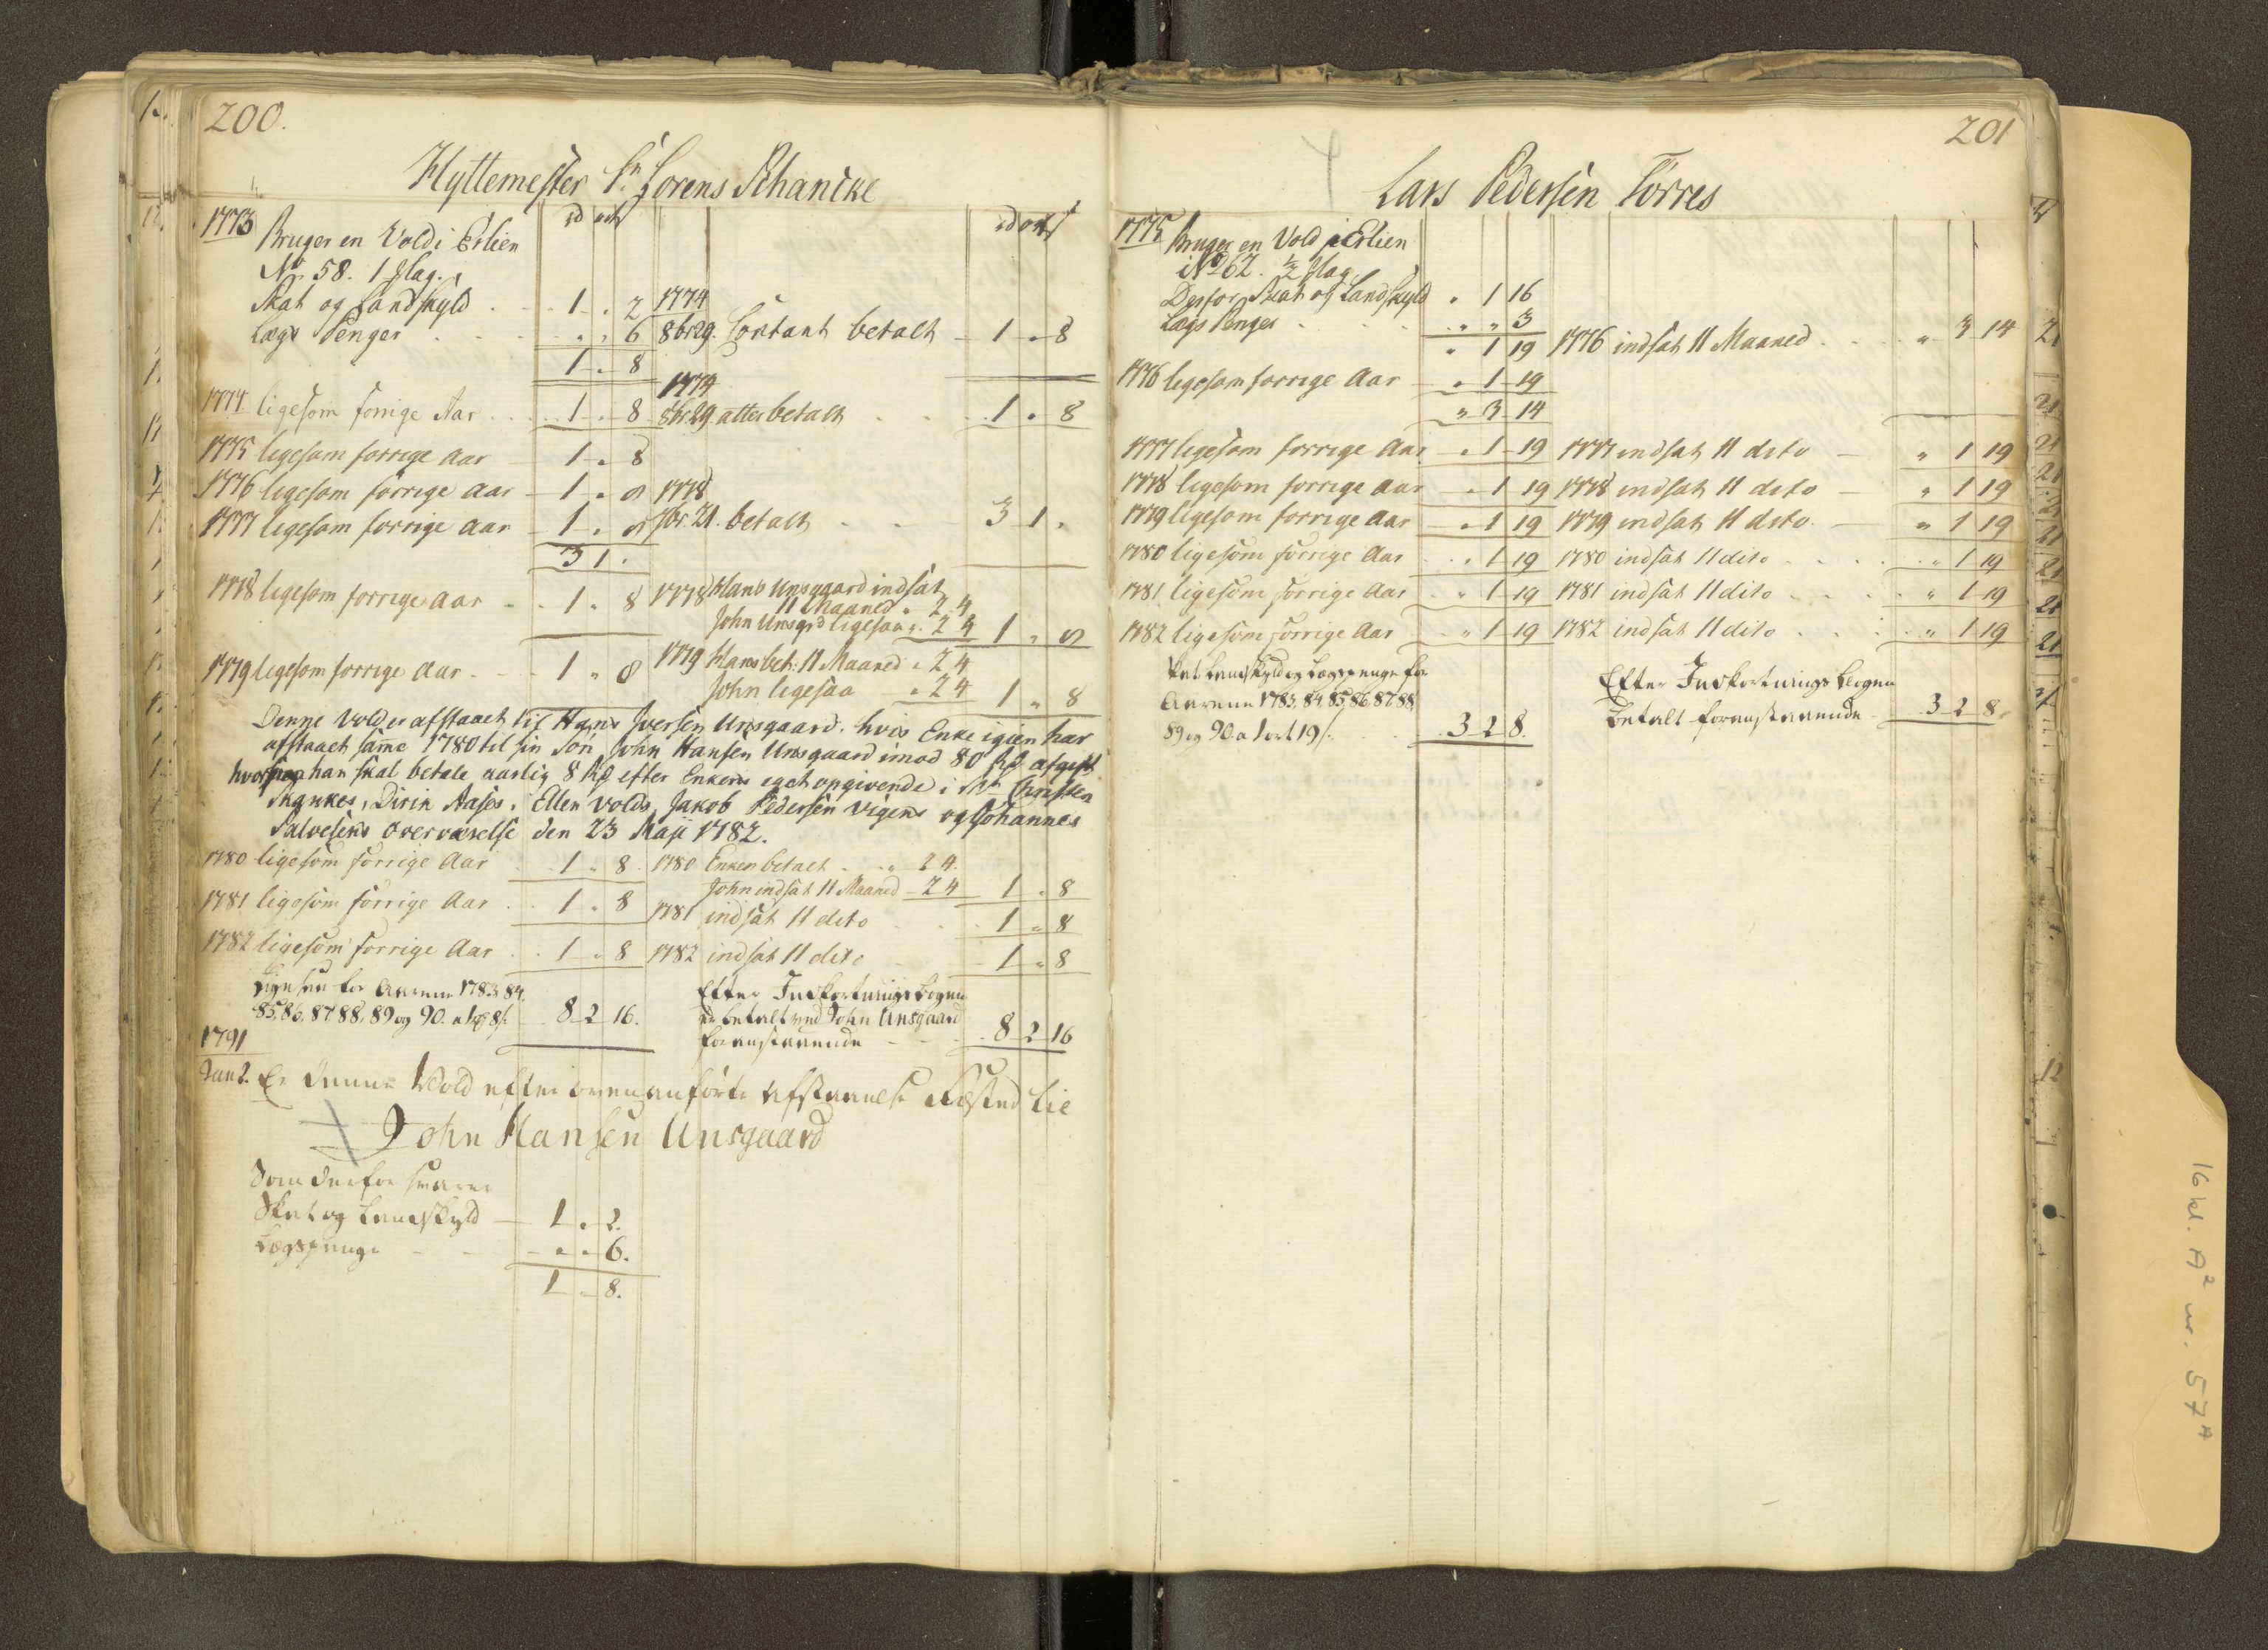 200.
Hyttemester Sr. Lorens Schancke
rd ort s
rd ort s
1773 Bruger en Vold i Erlien
No 58. 1 slag.
Skat og Landskyld . . 1 " 2
Lægs Penger . . " " 6
1 " 8
1774
8br 29. Contant betalt 1 " 8
1774 ligesom forrige Aar . . 1 " 8
1774
8br. 29. atter betalt . . 1 " 8
1775 ligesom forrige Aar 1 " 8
1776 ligesom forrige Aar 1 " 8
1777 ligesom forrige Aar 1 " 8
3 1 "
1778
7br 21. betalt . . 3 1 "
1778 ligesom forrige Aar . . 1 " 8
1778 Hans Unsgaard indsat
11 Maaned " 2 4
John Unsgrd ligesaa " 2 4 1 " 8
1779 ligesom forrige Aar . . 1 " 8
1779 Hans bet: 11 Maaned " 2 4
John ligesaa " 2 4 1 " 8
Denne Vold er afstaaet til Hans Iversen Unsgaard, hvis Enke igien har
afstaaet samme 1780 til sin Søn John Hansen Unsgaard imod 80 Rd afgift
han skal betale aarlig 8 Rd efter Enkens eget opgivende i
Skankes, Dirik Aases, Ellen Volds, Jakob Pedersen Vigens og Johannes
Salvesens overværelse den 23 Maji 1782.
1780 ligesom forrige Aar . . 1 " 8
1780 Enken betalt . . " 2 4
John indsat 11 Maaned 2 4 1 " 8
1781 ligesom forrige Aar . . 1 " 8
1781 indsat 11 dito . . 1 " 8
1782 ligesom forrige Aar . . 1 " 8
1782 indsat 11 dito 1 " 8
Ligesaa for Aarene 1783, 84,
85, 86, 87, 88, 89 og 90. a 1 rd 8 s. 8 2 16.
Efter Indkortnings bogen
er betalt ved John Unsgaard
foranstaaende . . 8 2 16
1791
Jan 2. Er denne Vold efter ovenanførte afstaaelse fæsted til
John Hansen Unsgaard
Som derfor svarer
Skat og Landskyld 1 " 2.
Lægspenge . . " " 6.
1 " 8.
201
Lars Pedersen Tørres
1775 Bruger en Vold i Erlien
No 262. 1/2 slag.
Derfor Skat og Landskyld " 1 16
Lægs Penger . . " " 3
" 1 19
1776 indsat 11 Maaned . . " 3 14
1776 ligesom forrige Aar " 1 19
" 3 14
1777 ligesom forrige Aar " 1 19
1777 indsat 11 dito " 1 19
1778 ligesom forrige Aar " 1 19
1778 indsat 11 dito " 1 19
1779 ligesom forrige Aar " 1 19
1779 indsat 11 dito " 1 19
1780 ligesom forrige Aar " 1 19
1780 indsat 11 dito . . " 1 19
1781 ligesom forrige Aar " 1 19
1781 indsat 11 dito . . " 1 19
1782 ligesom forrige Aar " 1 19
1782 indsat 11 dito . . " 1 19
Skat Landskyld og Lægspenge for
Aarene 1783, 84, 85, 86, 87, 88,
89 og 90. a 1 ort 19 s. . . 3 2 8.
Efter Indkortnings bogen
betalt foranstaaende 3 2 8.
16 kl. A² nr. 57ᴬ